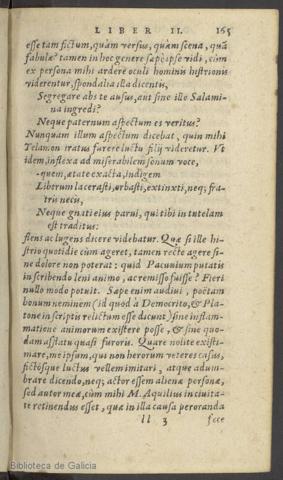 LIBER II. 165
esse tam fictum, quàm versus, quàm scena, quā
fabulæ? tamen in hoc genere sæpè ipse vidi, cùm
ex persona mihi ardere oculi hominis histrionis
viderentur, spondalia illa dicentis,
Segregare abs te ausus, aut sine illo Salami-
na ingredi?
Neque paternum aspectum es veritus?
Nunquam illum aspectum dicebat, quin mihi
Telamon iratus furere luctu filij videretur. Vt
idem, inflexa ad miserabilem sonum voce,
-quem, ætate exacta, indigem
Liberum lacerasti, orbasti, extinxti, neq; fra-
tris necis,
Neque gnati eius parui, qui tibi in tutelam
est traditus:
flens ac lugens dicere videbatur. Quæ si ille hi-
strio quotidie cùm ageret, tamen rectè agere si-
ne dolore non poterat: quid Pacuuium putatis
in scribendo leni animo, ac remisso fuisse? Fieri
nullo modo potuit. Sæpe enim audiui, poëtam
bonum neminem (id quod à Democrito, & Pla-
tone in scriptis relictum esse dicunt) sine inflam-
matione animorum existere posse, & sine quo-
dam afflatu quasi furoris. Quare nolite existi-
mare, me ipsum, qui non herorum veteres casus,
fictósque luctus vellem imitari, atque adum-
brare dicendo, neq; actor essem alienæ personæ,
sed autor meæ, cùm mihi M. Aquilius in ciuita-
te retinendus esset, quæ in illa causa peroranda
ll 3 fece
Biblioteca de Galicia